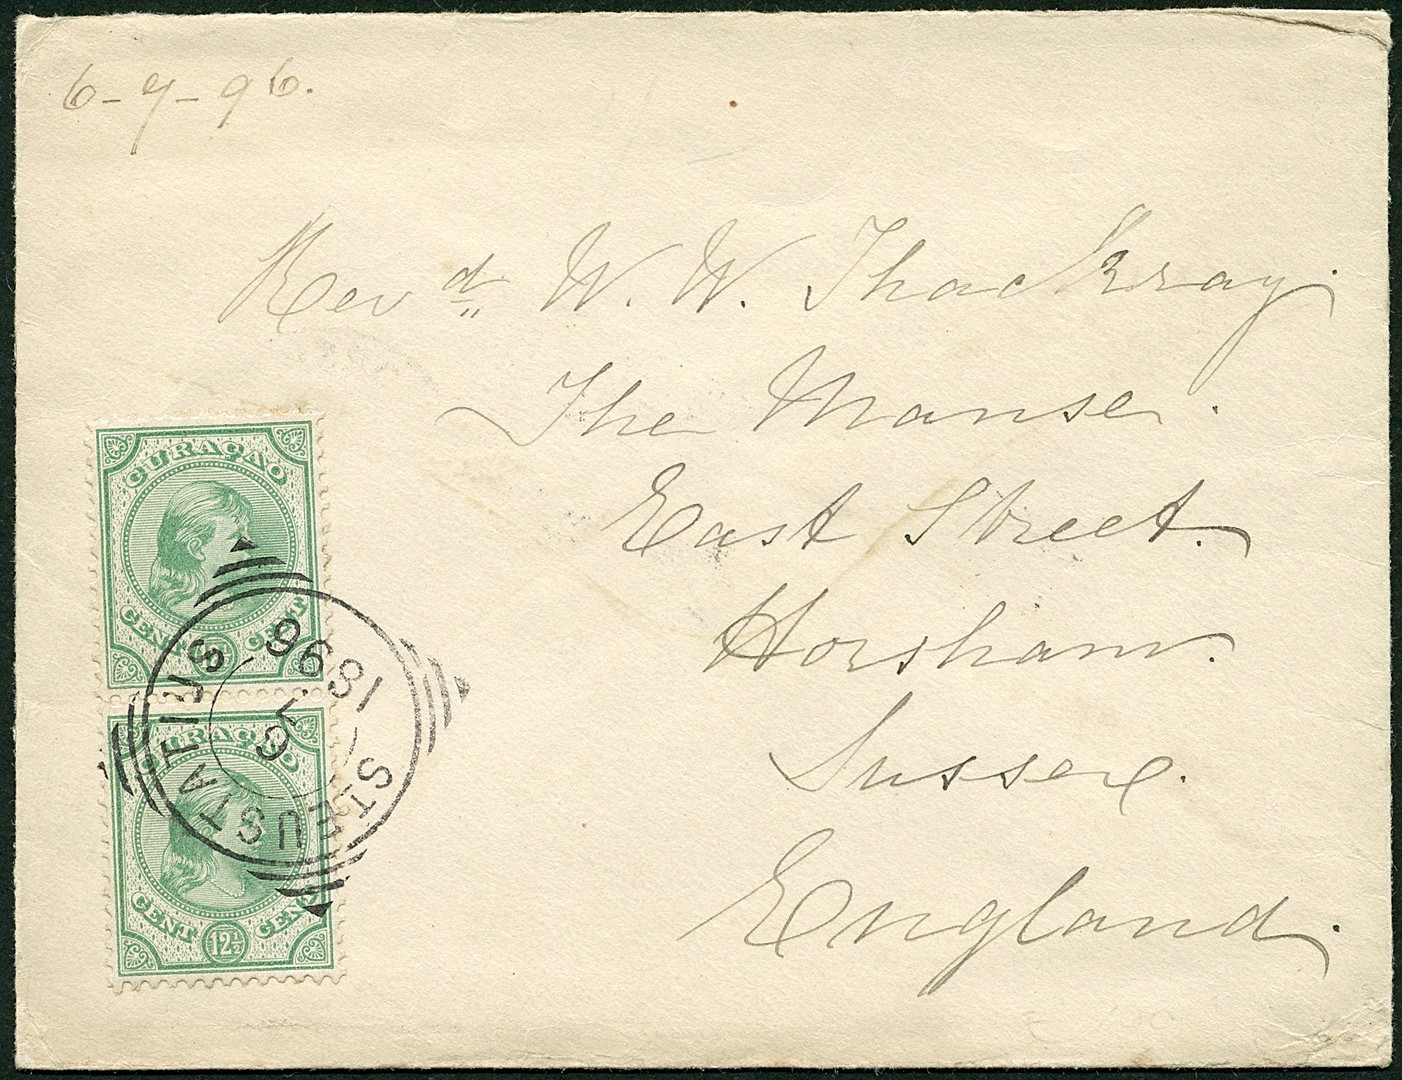 6-7-96.
Revd. W. W. Thackray.
The Manse.
East Street.
Horsham.
Sussex.
England.
CURAÇAO
CENT CENT
CURAÇAO
CENT 12½ CENT
ST EUSTATIUS
6
7
1896